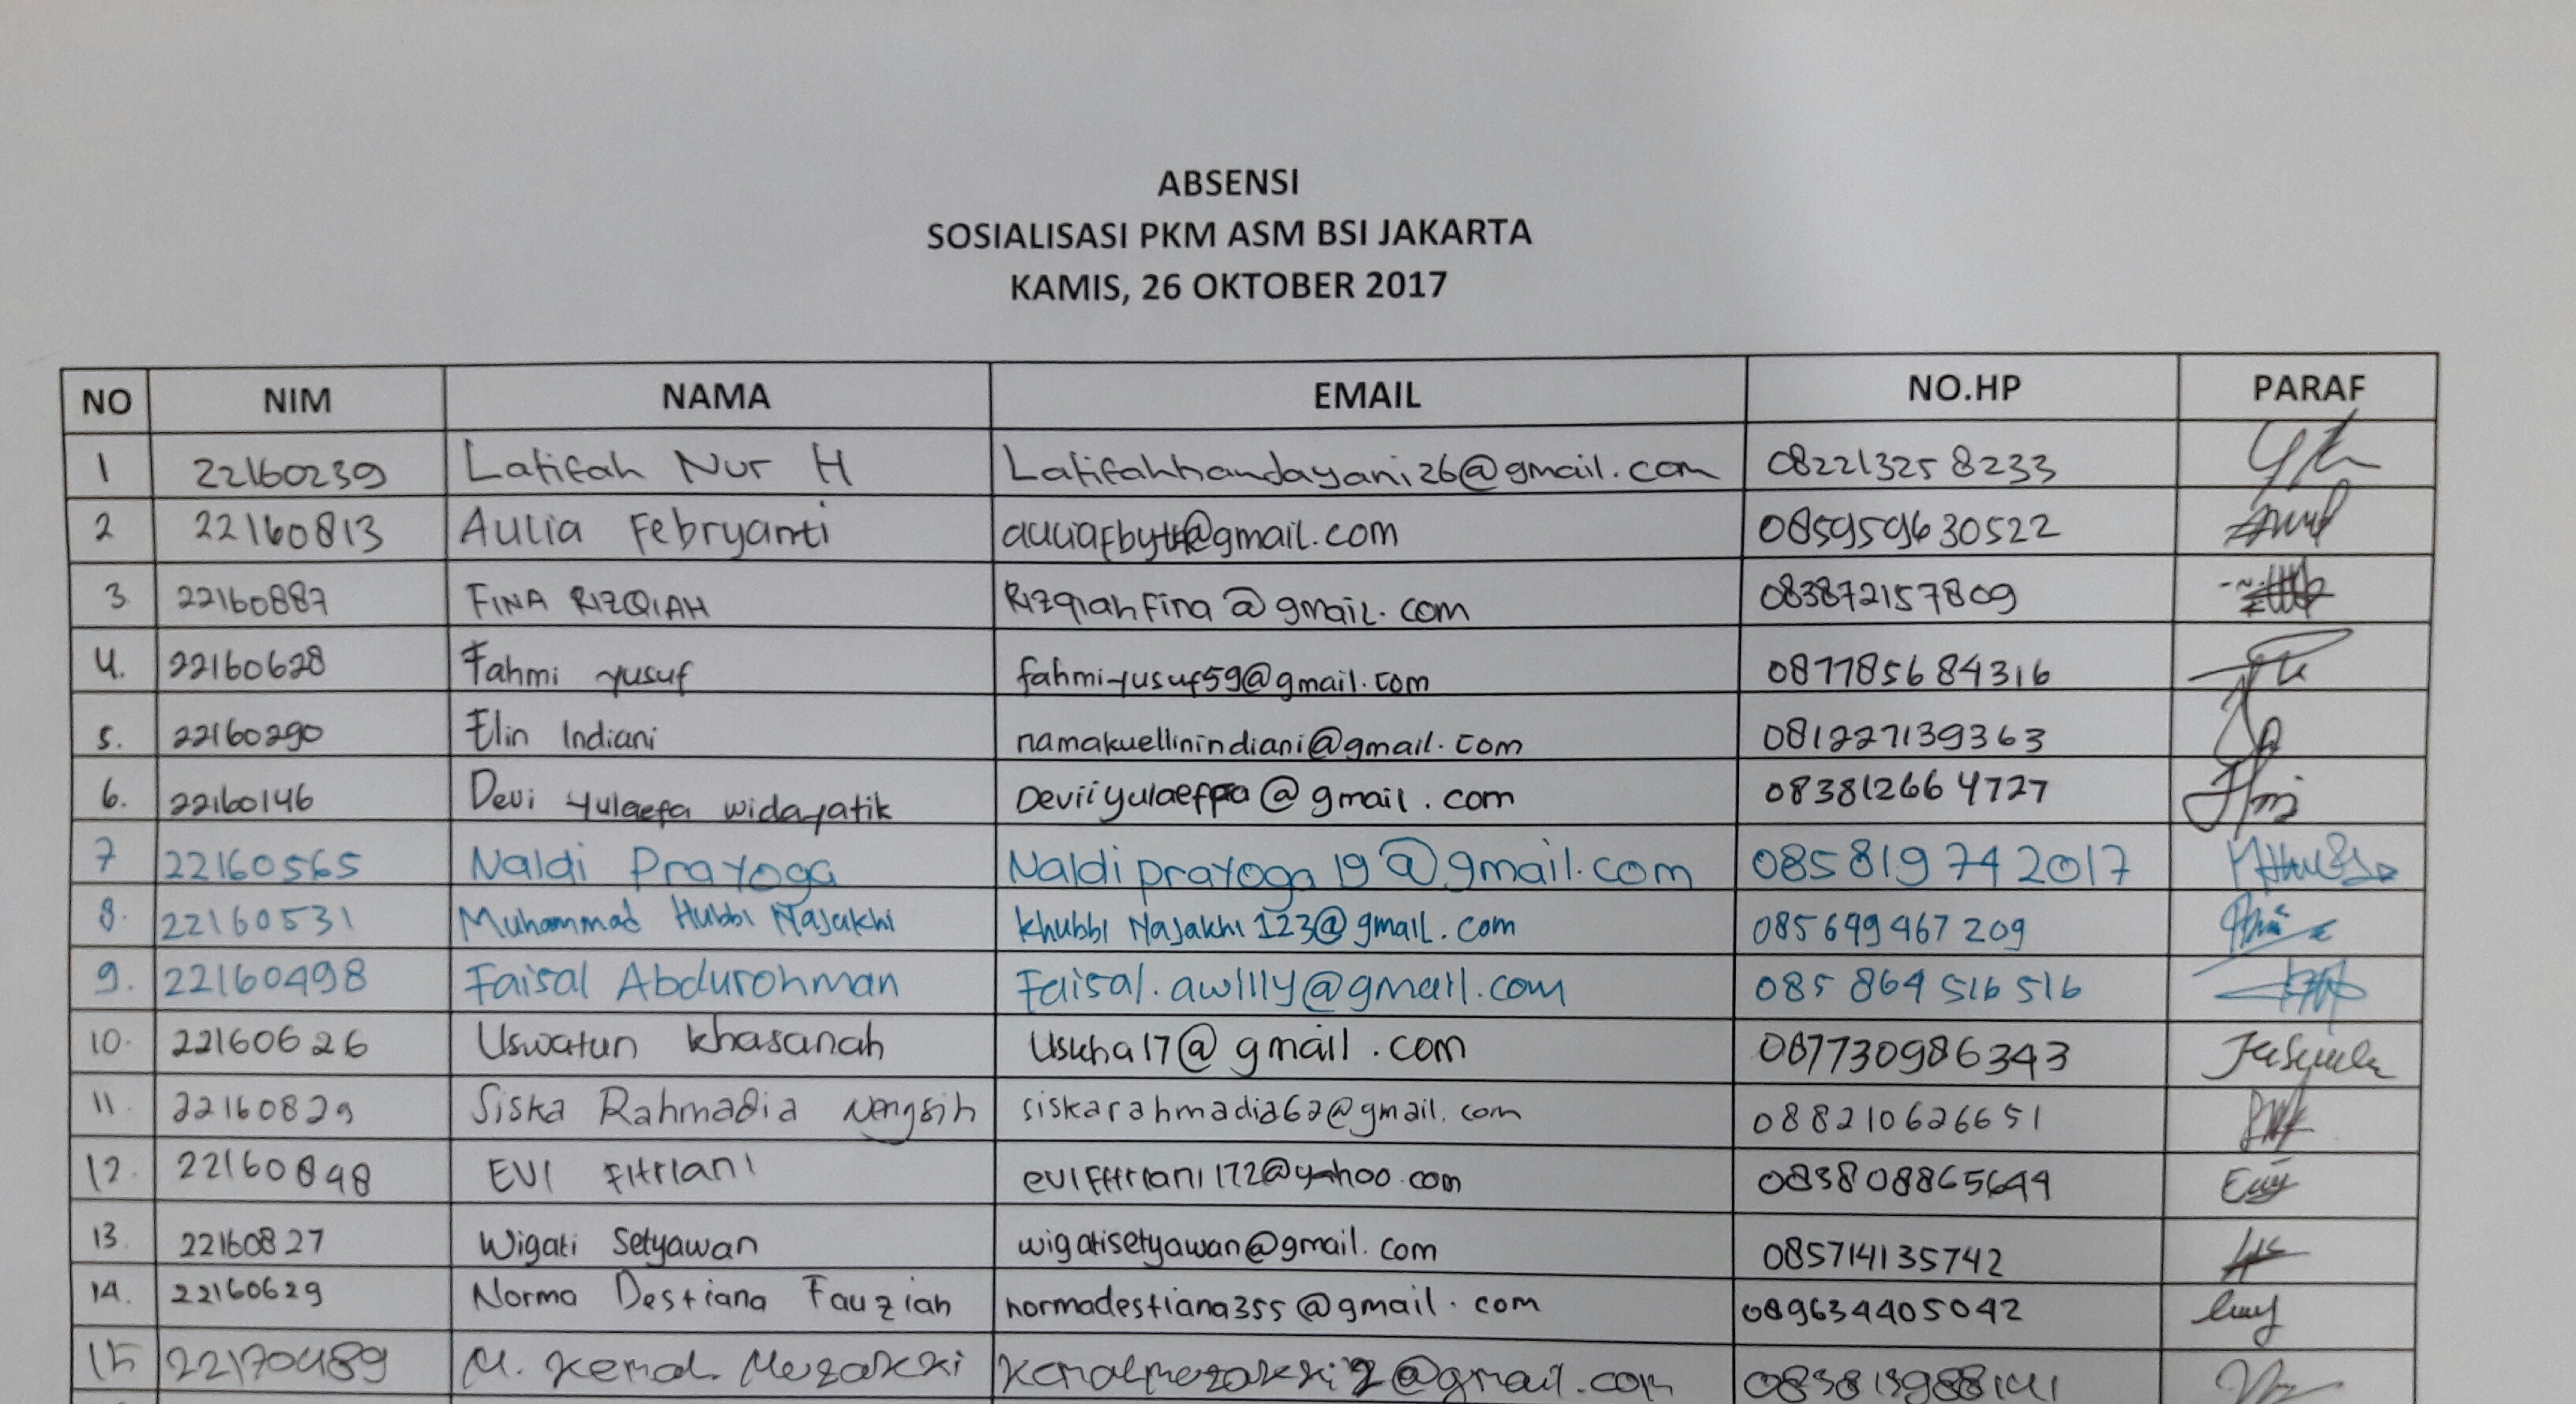 ABSENSI
SOSIALISASI PKM ASM BSI JAKARTA
KAMIS, 26 OKTOBER 2017
NO NIM NAMA EMAIL NO.HP PARAF
1 22160239 Latifah Nur H Latifahhandayani26@gmail.com 082213258233
2 22160813 Aulia Febryanti 085959630522
3. 22160887 FINA RIZQIAH RizqiahFina@gmail.com 083872157809
4. 22160628 Fahmi yusuf fahmiyusuf59@gmail.com 087785684316
5. 22160290 Elin Indiani namakuellinindiani@gmail.com 081227139363
6. 22160146 Devi yulaefa widayatik 083812664727
7 22160565 Naldi Prayoga Naldiprayoga19@gmail.com 085819742017
8. 22160531 Muhammad Hubbi Najakhi khubbi Najakhi 123@gmail.com 085699467209
9. 22160498 Faisal Abdurohman Faisal.awllly@gmail.com 085 864 516 516
10. 22160626 Uswatun khasanah Uskha17@gmail.com 087730986343
11. 22160829 Siska Rahmadia Nengsih siskarahmadia62@gmail.com 088210626651
12. 22160848 EVI FITRIANI eviFitriani172@yahoo.com 083808865644
13. 22160827 Wigati Setyawan wigatisetyawan@gmail.com 085714135742
14. 22160629 Norma Destiana Fauziah normadestiana355@gmail.com 089634405042
15 22170489 M. Kemal Muzakki